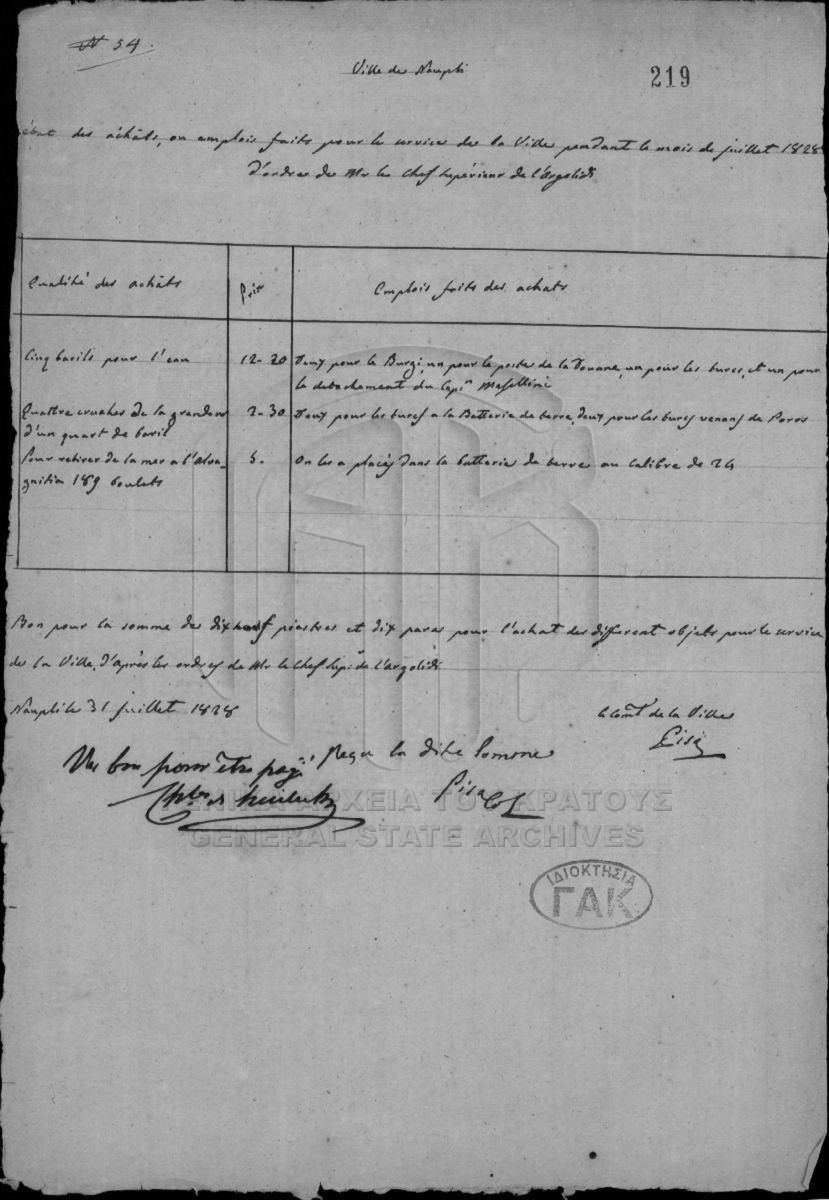 N 54.
Ville de Naupli
219
état des achâts, ou emplois faits pour le service de la Ville pendant le mois de juillet 1828
d'ordre de Mr le Chef supérieur de l'Argolide
Qualité des achâts
Prix
Emplois faits des achats
Cinq barils pour l'eau
12-20
Deux pour le Burgi, un pour le poste de la Douane, un pour les turcs, et un pour
le detachement du Capn
Quattre cruches de la grandeur
d'un quart de baril
2-30
Deux pour les turcs a la Batterie de terre, deux pour les turcs venans de Poros
Pour retirer de la mer a l'
189 boulets
5.
On les a placés dans la batterie de terre au calibre de 24
Bon pour la somme de dixneuf piastres et dix paras pour l'achat des different objets pour le service
de la Ville, d'après les ordres de Mr le Chef Supr de l'argolide
Naupli le 31 juillet 1828
le Comt de la Ville
Pisa
Vu bon pour être payé
Reçu la dite Somme
Pisa Col
ΓΕΝΙΚΑ ΑΡΧΕΙΑ ΤΟΥ ΚΡΑΤΟΥΣ
GENERAL STATE ARCHIVES
ΙΔΙΟΚΤΗΣΙΑ
ΓΑΚ